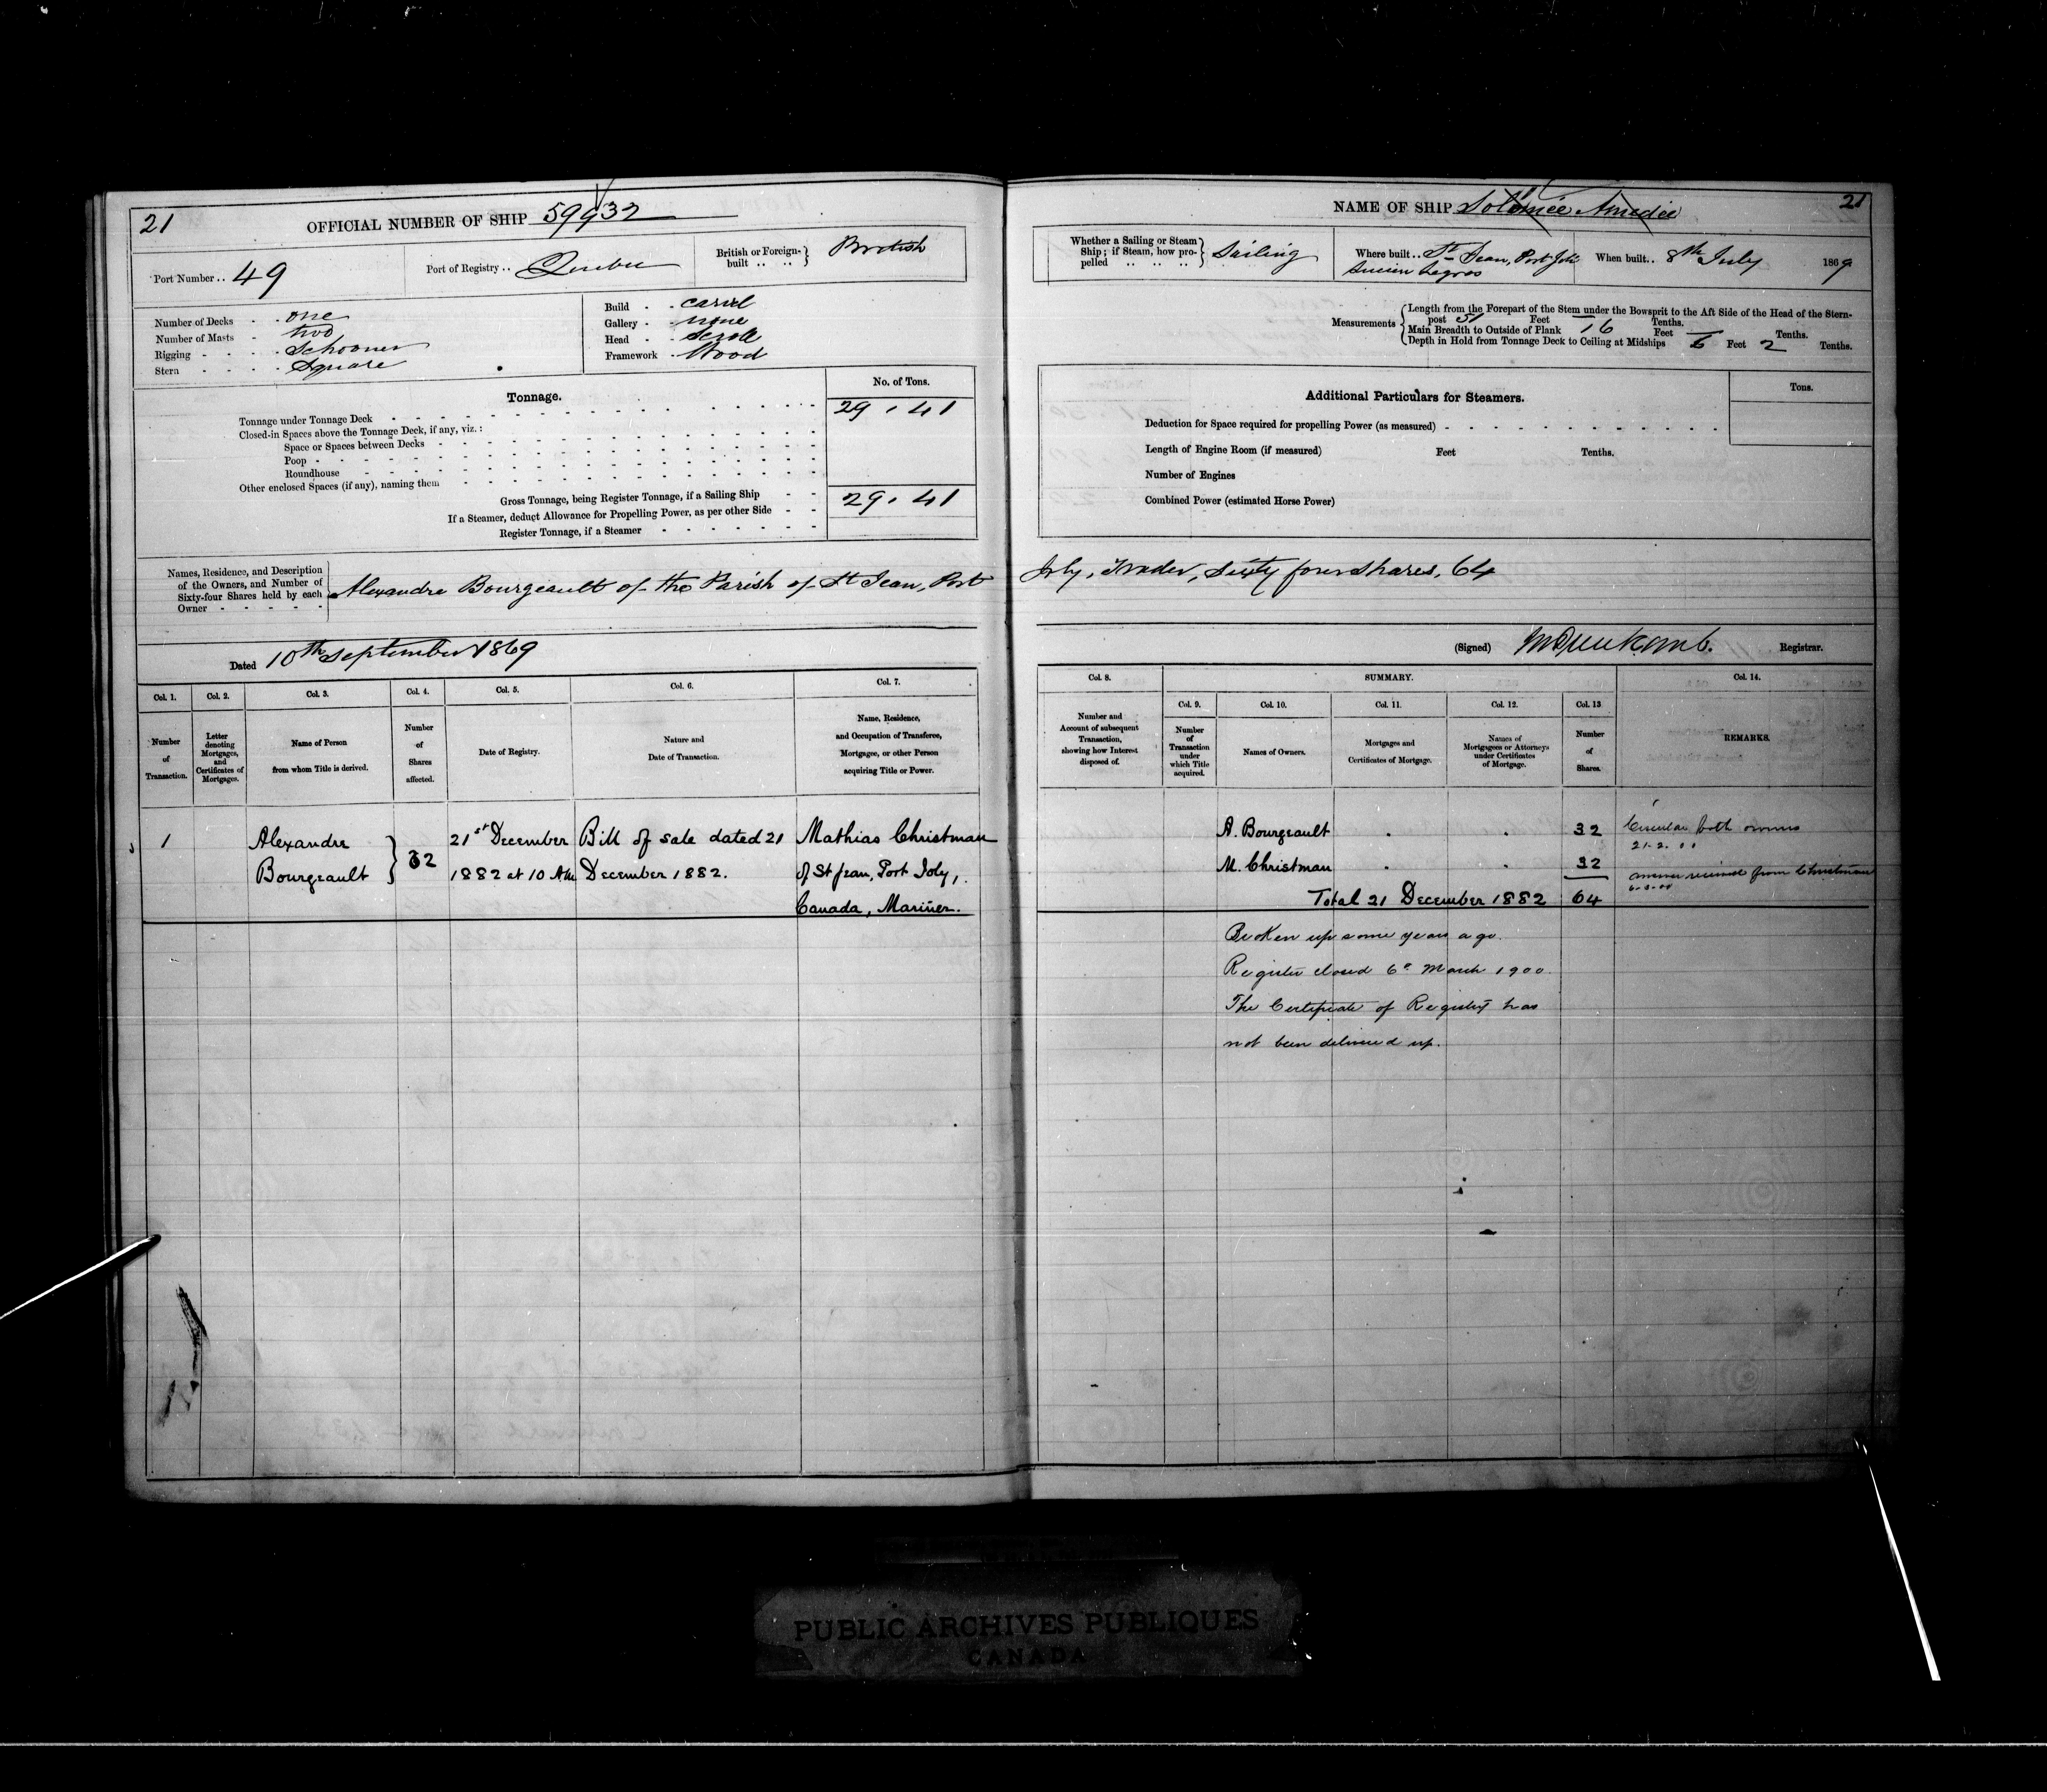 21
OFFICIAL NUMBER OF SHIP 59932
Port Number .. 49
Port of Registry .. Quebec
British or Foreign-built .. .. British
Number of Decks - . one
Number of Masts - two
Rigging - - - . Schooner
Stern - - - . Square
Build - - carvel
Gallery - none
Head - - Scroll
Framework - Wood
Tonnage.
No. of Tons.
Tonnage under Tonnage Deck 29.41
Closed-in Spaces above the Tonnage Deck, if any, viz.:
Space or Spaces between Decks
Poop
Roundhouse
Other enclosed Spaces (if any), naming them
Gross Tonnage, being Register Tonnage, if a Sailing Ship 29.41
If a Steamer, deduct Allowance for Propelling Power, as per other Side
Register Tonnage, if a Steamer
Names, Residence, and Description
of the Owners, and Number of
Sixty-four Shares held by each
Owner
Alexandre Bourgeault of the Parish of St Jean, Port
Dated 10th September 1869
Col. 1. Col. 2. Col. 3. Col. 4. Col. 5. Col. 6. Col. 7.
Number of Transaction.
Letter denoting Mortgages, and Certificates of Mortgages.
Name of Person from whom Title is derived.
Number of Shares affected.
Date of Registry.
Nature and Date of Transaction.
Name, Residence, and Occupation of Transferee, Mortgagee, or other Person acquiring Title or Power.
1 Alexandre 21st December Bill of sale dated 21 Mathias Christman
Bourgeault } 32 1882 at 10 AM December 1882. of St Jean, Port Joly,
Canada, Mariner.
NAME OF SHIP Solomée Amedée
21
Whether a Sailing or Steam
Ship; if Steam, how pro-
pelled .. .. .. Sailing
Where built .. St Jean, Port Joli
Lucien Legros
When built .. 8th July 1869
Measurements
Length from the Forepart of the Stem under the Bowsprit to the Aft Side of the Head of the Stern-
post 51 Feet Tenths.
Main Breadth to Outside of Plank 16 Feet Tenths.
Depth in Hold from Tonnage Deck to Ceiling at Midships 6 Feet 2 Tenths.
Additional Particulars for Steamers.
Tons.
Deduction for Space required for propelling Power (as measured)
Length of Engine Room (if measured) Feet Tenths.
Number of Engines
Combined Power (estimated Horse Power)
Joly, Trader, Sixty four Shares, 64
(Signed) Registrar.
Col. 8. SUMMARY. Col. 14.
Col. 9. Col. 10. Col. 11. Col. 12. Col. 13
Number and Account of subsequent Transaction, showing how Interest disposed of.
Number of Transaction under which Title acquired.
Names of Owners.
Mortgages and Certificates of Mortgage.
Names of Mortgagees or Attorneys under Certificates of Mortgage.
Number of Shares.
REMARKS.
A. Bourgeault 32 Circular both owners
21.2.00
M. Christman 32 answer received from Christman
6.3.00
Total 21 December 1882 64
Broken up some years ago.
Register closed 6th March 1900.
The Certificate of Registry has
not been delivered up.
PUBLIC ARCHIVES PUBLIQUES
CANADA